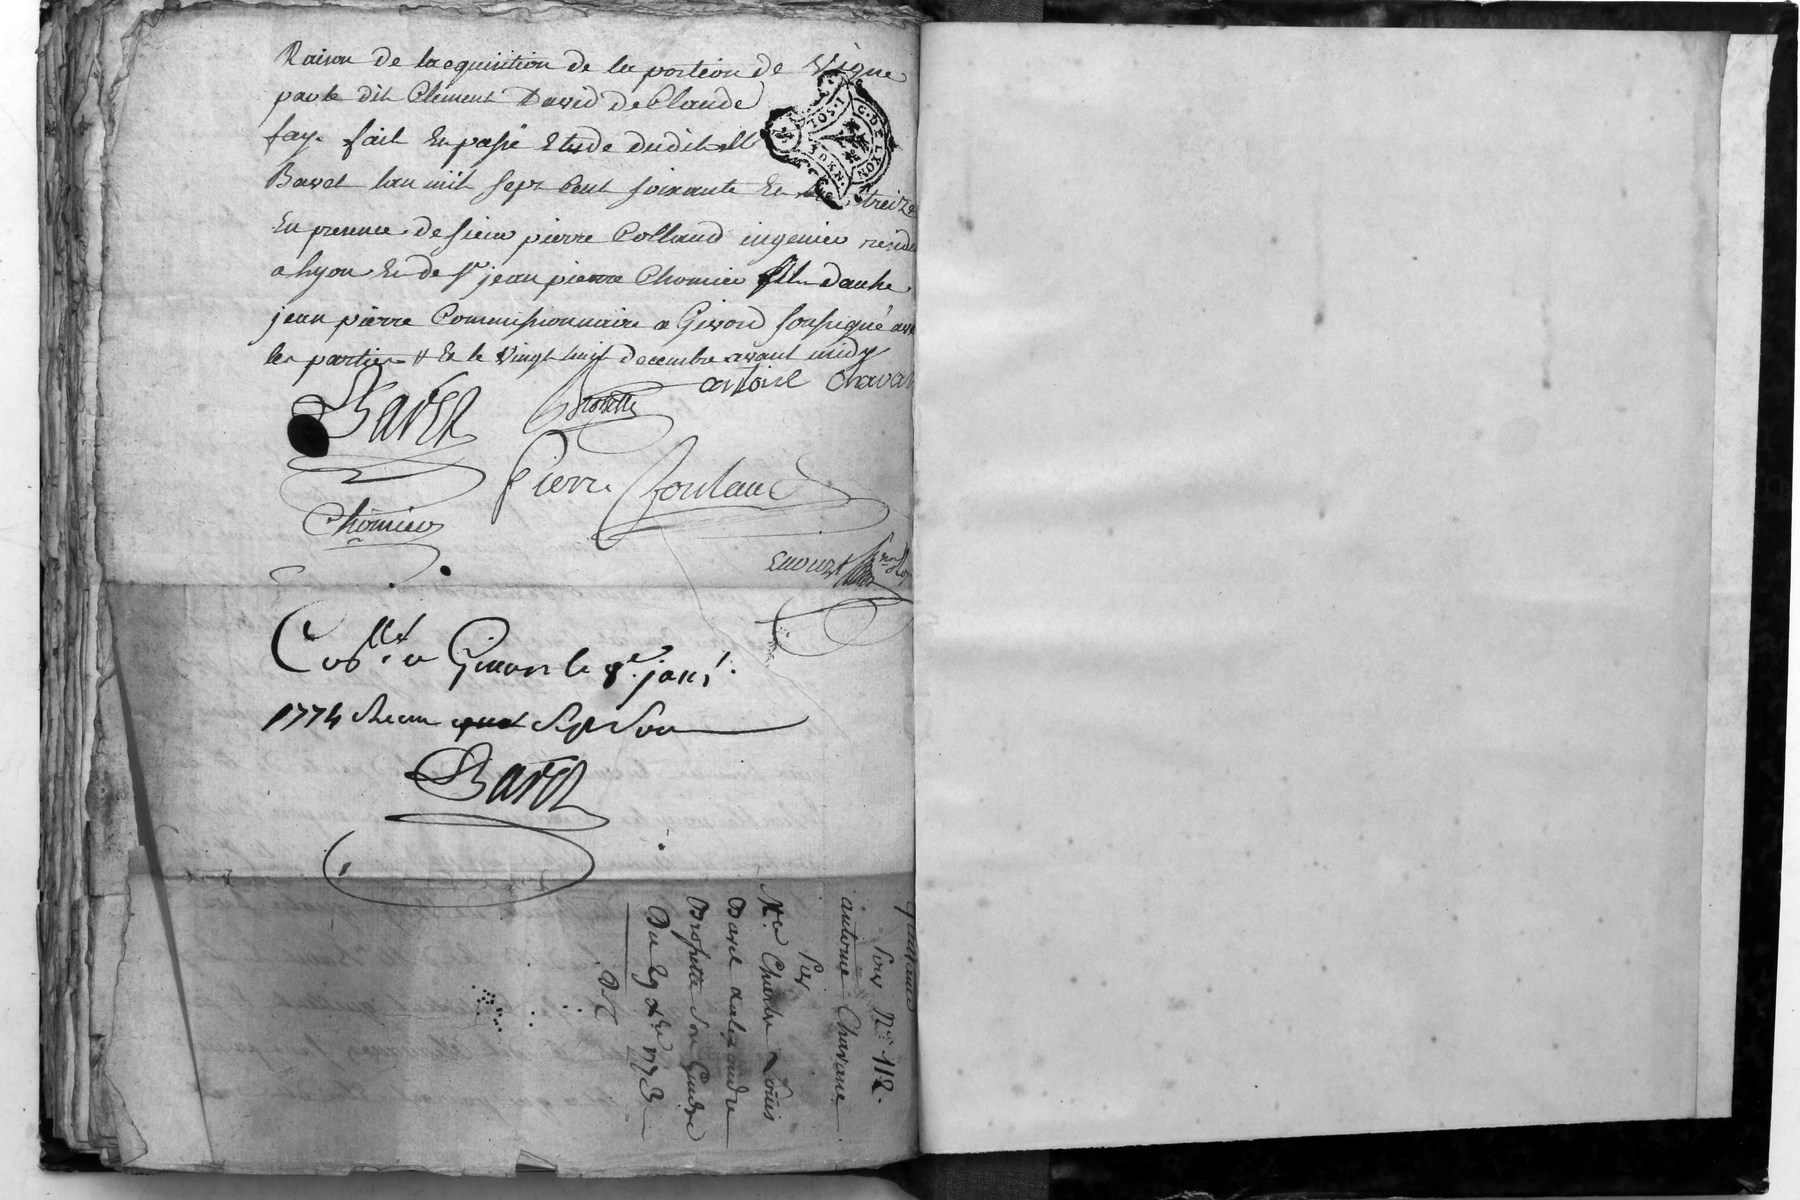 Raison de lacquisition de la portion de Vigne
par le dit Clement David de Claude
fay. fait Et passé Etude dudit Me
Baret lan mil sept Cent soixante Et treize
En presence de sieur pierre Colland ingenieur resid
a Lyon Et de Sr jean pierre Chomier fils dautre
jean pierre Commissionnaire a Givord soussigné avec
les parties # & le vingt huit decembre avant midy
antoine Chavan
Baret
Brossette
Pierre Coulaud
Chomier
Collé a Givors le 8e janr
1774 Recu quat Sept Sou
Baret
quittance
Sous No 112.
antoine Chavane
Par
Me Charle Louis
Baret a alexandre
Brossette son Gendre
Du 29 Xbre 1773